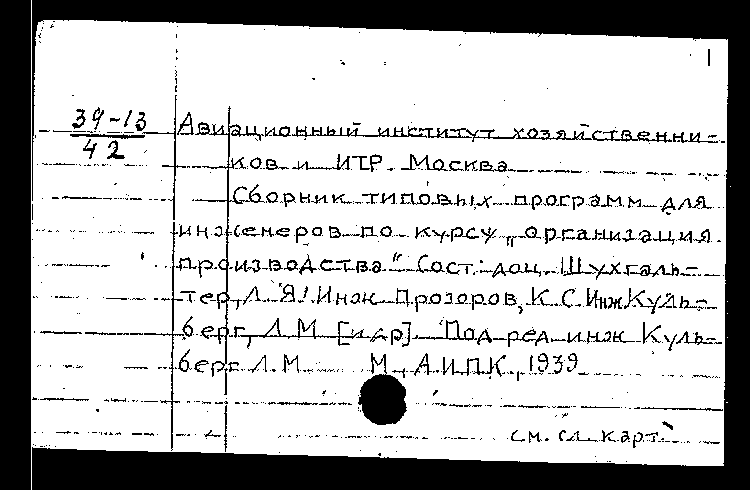 39-13
42
Авиационный институт хозяйственни-
ков и ИТР. Москва
Сборник типовых программ для
инженеров по курсу „организация
производства“ Сост: доц. Шухгаль-
тер, Л. Я. Инж Прозоров, К. С. Инж Куль-
берг, Л. М. [и др]. Под ред. инж Куль-
берг Л. М. М., А.И.П.К., 1939
см. сл. карт.